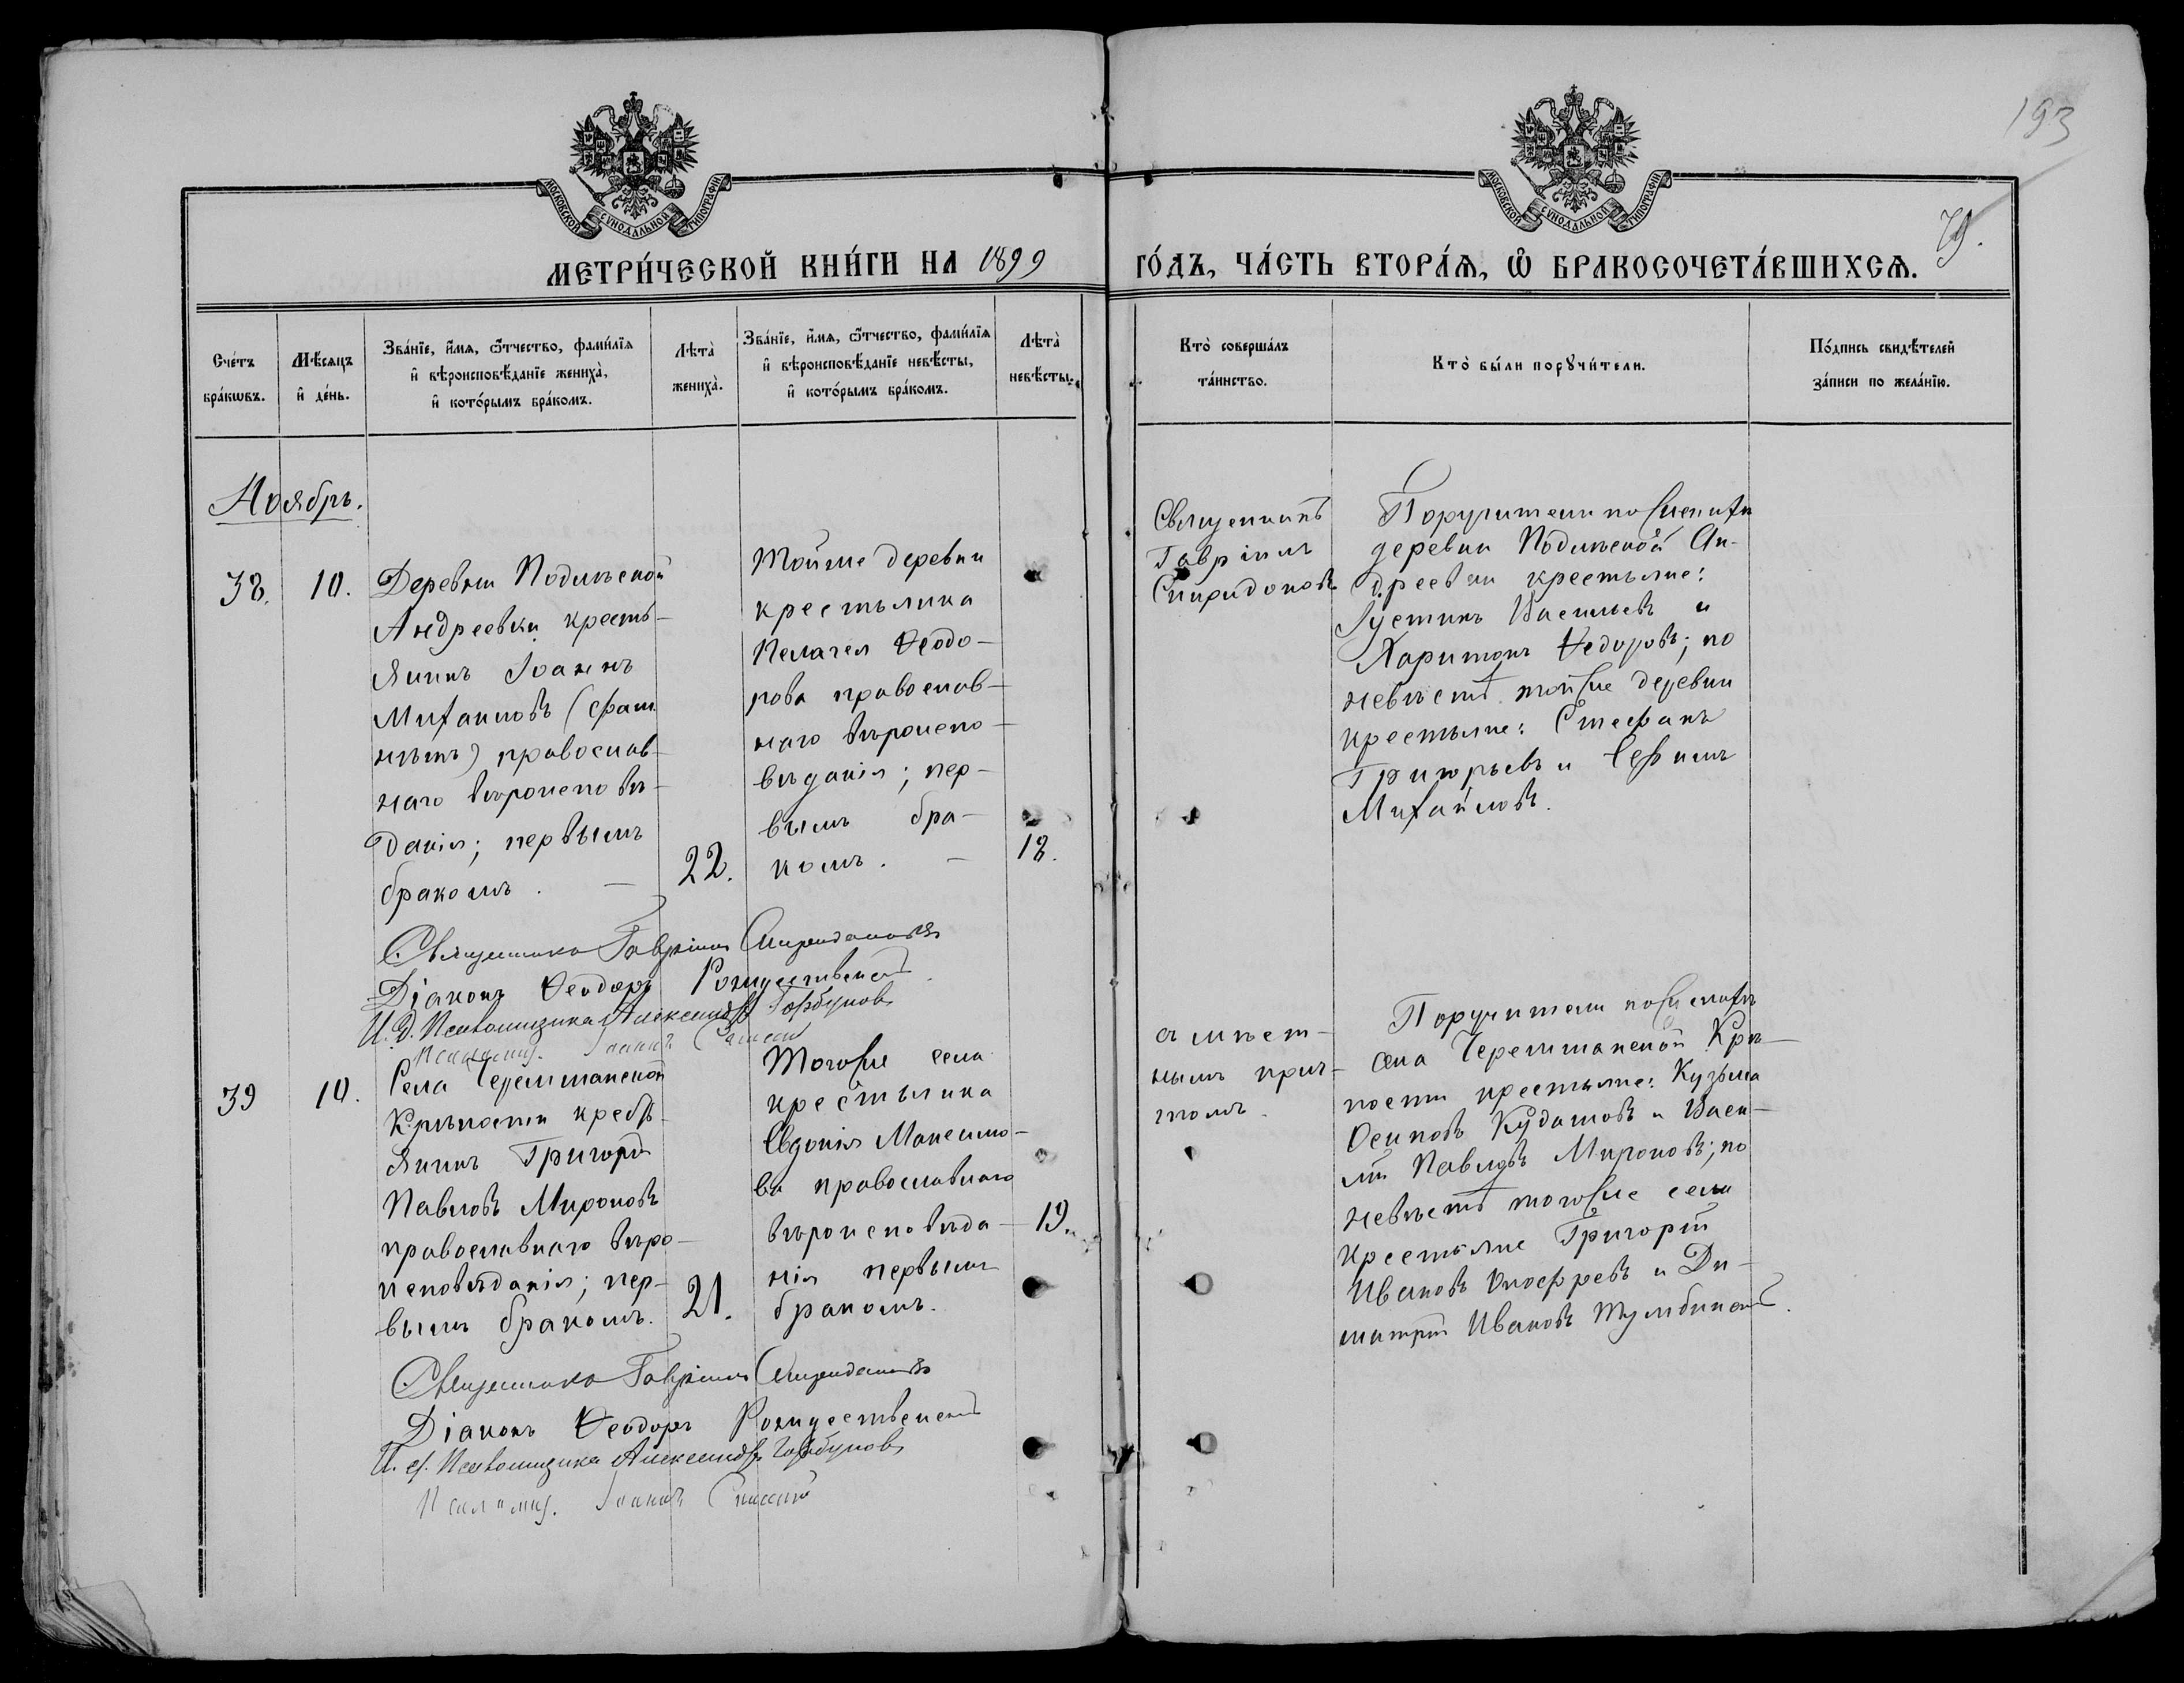 193
79.
МОСКОВСКОЙ СѴНОДАЛЬНОЙ ТИПОГРАФІИ
МОСКОВСКОЙ СѴНОДАЛЬНОЙ ТИПОГРАФІИ
МЕТРИ́ЧЕСКОЙ КНИ́ГИ НА 1899
ГО́ДЪ, ЧА́СТЬ ВТОРА́Ѧ, Ѽ БРАКОСОЧЕТА́ВШИХСѦ.
Сче́тъ
бра́кѡвъ.
Мѣ́сяцъ
и҆ де́нь.
Зва́нїе, и҆́мѧ, ѻ҆́тчество, фами́лїѧ
и҆ вѣроисповѣ́данїе жениха̀,
и҆ кото́рымъ бра́комъ.
Лѣта̀
жениха̀.
Зва́нїе, и҆́мѧ, ѻ҆́тчество, фами́лїѧ
и҆ вѣроисповѣ́данїе невѣ́сты,
и҆ кото́рымъ бра́комъ.
Лѣта̀
невѣ́сты.
Кто̀ соверша́лъ
та́инство.
Кто̀ бы́ли порꙋчи́тели.
По́дпись свидѣ́телей
за́писи по жела́нїю.
Ноябрь.
38.
10.
Деревни Подлѣсной
Андреевки кресть-
янинъ Іоаннъ
Михаиловъ (
) православ-
наго вѣроисповѣ-
данія; первымъ
бракомъ. —
22.
Тойже деревни
крестьянка
Пелагея Ѳеодо-
рова православ-
наго вѣроиспо-
вѣданія; пер-
вымъ бра-
комъ. —
18.
Священникъ
Гавріилъ
Спиридоновъ
Поручители по женихѣ
деревни Подлѣсной Ан-
дреевки крестьяне:
Іустинъ Васильевъ и
Харитонъ Ѳедоровъ; по
невѣстѣ тойже деревни
крестьяне: Стефанъ
Григорьевъ и Ефимъ
Михайловъ.
Священникъ Гавріилъ Спиридоновъ
Діаконъ Ѳеодоръ Рождественскій
И. д. Псаломщика Александръ Горбуновъ
Псаломщ. Іоаннъ
39
10.
Села Черемшанской
Крѣпости кресть-
янинъ Григорій
Павловъ Мироновъ
православнаго вѣро-
исповѣданія; пер-
вымъ бракомъ.
21.
Тогоже села
крестьянка
Евдокія Максимо-
ва православнаго
вѣроисповѣда-
нія первымъ
бракомъ.
19.
съ мѣст-
нымъ прич-
томъ.
Поручители по женихѣ
села Черемшанской Крѣ-
пости крестьяне: Кузьма
Осиповъ Кудашовъ и Васи-
лій Павловъ Мироновъ; по
невѣстѣ тогоже села
крестьяне Григорій
Ивановъ и Ди-
митрій Ивановъ Тумбинскій.
Священникъ Гавріилъ Спиридоновъ
Діаконъ Ѳеодоръ Рождественскій
И. д. Псаломщика Александръ Горбуновъ
Псаломщ. Іоаннъ